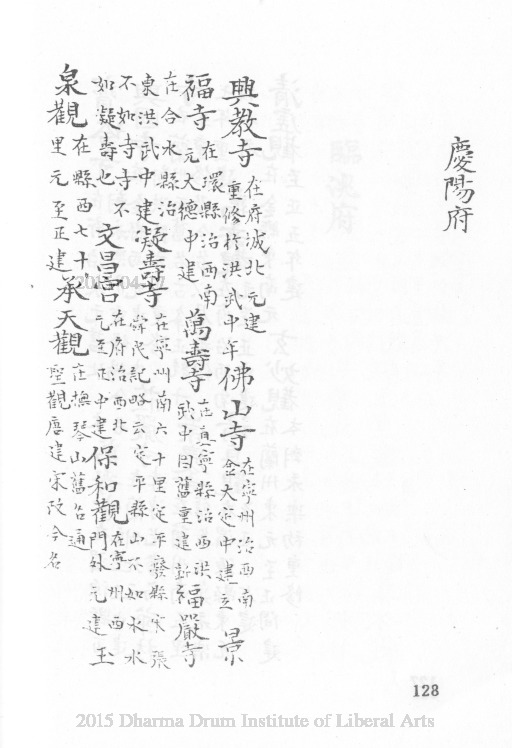 慶陽府
興教寺在府城北元建重修於洪武中年佛山寺在寧州治西南金大定中建立景
福寺在環縣治西南元大德中建萬壽寺在真寧縣治西洪武中因舊重建新福嚴寺
在合水縣治東洪武中建凝壽寺在寧州南六十里定平廢縣宋張舜民記略云定平縣山不如水水
不如寺寺不如凝壽也文昌宮在府治西北元至正中建保和觀在寧州西門外元建玉
泉觀在縣西七十里元至正建承天觀在撫琴山舊名通聖觀唐建宋改今名
128
2015 Dharma Drum Institute of Liberal Arts